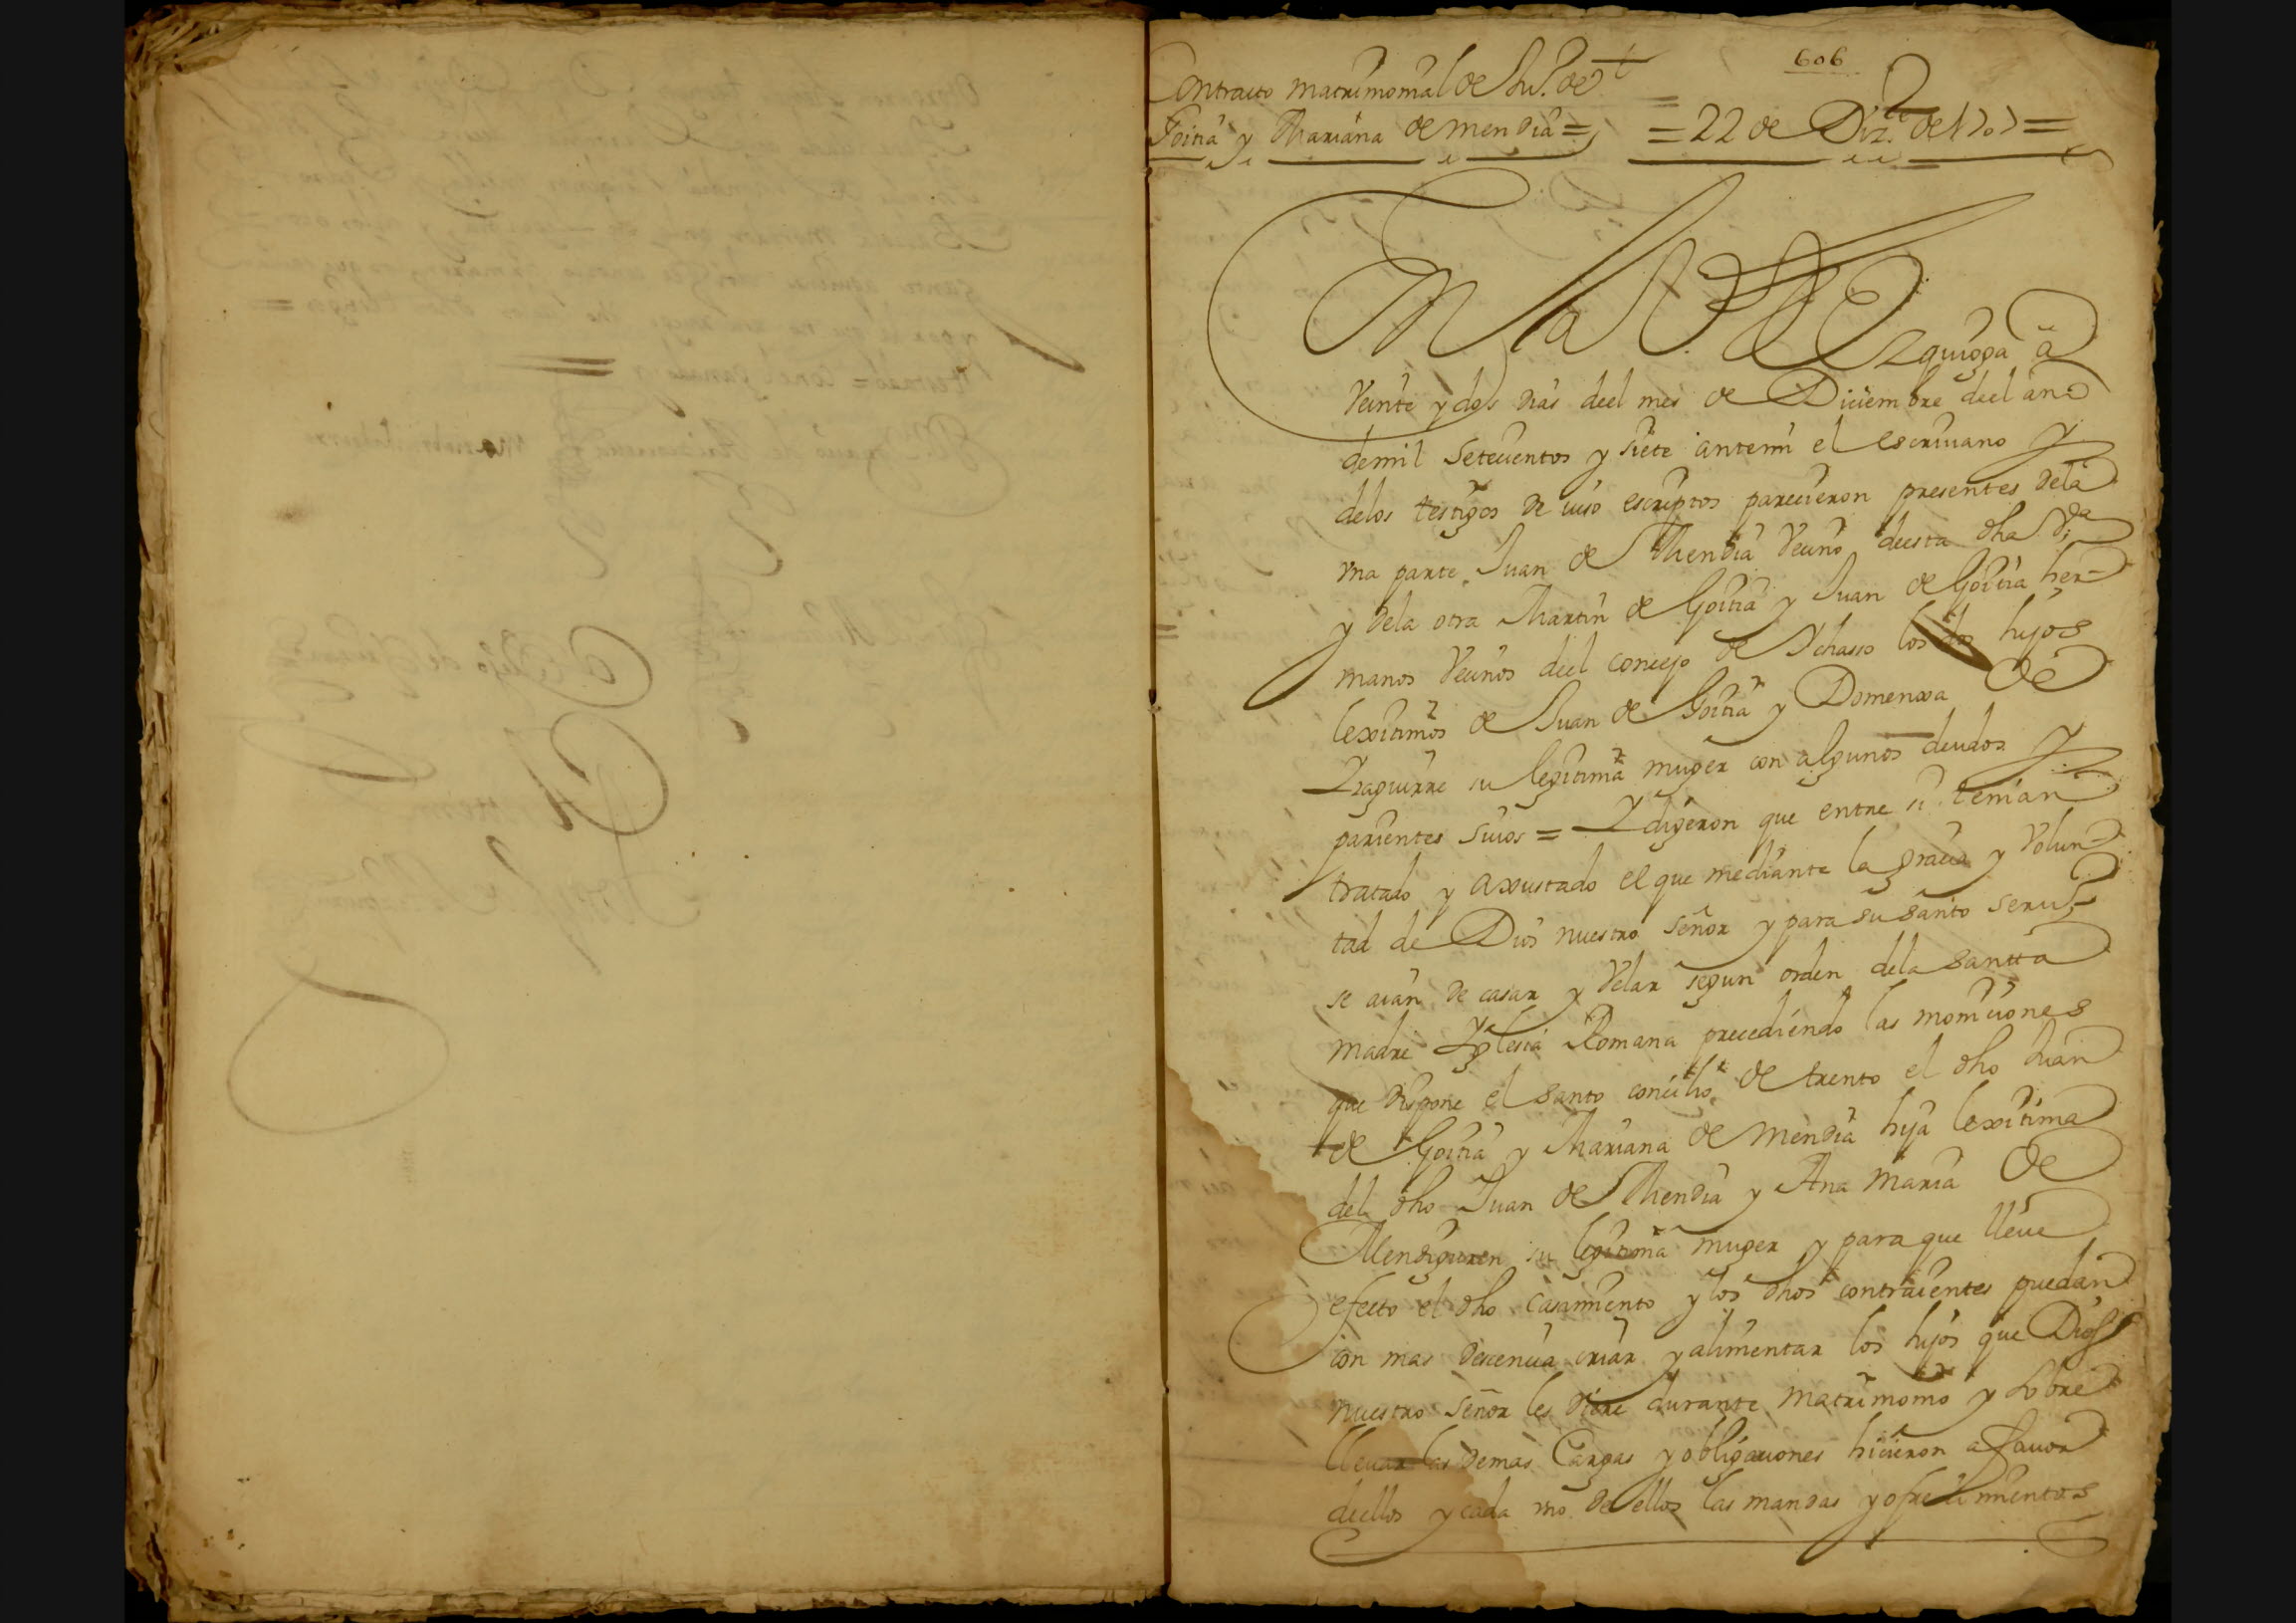 606
Contracto matrimonial de Ju.º de
Goitia y Mariana de mendia =
= 22 de Diz.e de 1707 =
En la V.a de Ezquioga a
Veinte y dos dias deel mes de Diciembre deel año
de mil setecientos y siete antemi el escriuano y
delos testigos de iuso escriptos parecieron presentes dela
vna parte Juan de Mendia Vecino deesta dha V.a
y dela otra Martin de Goitia y Juan de Goitia her=
manos Vecinos deel concejo de Ychasso los dos hijos
lexitimos de Juan de Goitia y Domenxa de
Yraguirre su legitima muger con algunos deudos y
parientes suios = Y digeron que entre si tenian
tratado y axustado el que mediante la gracia y Volun=
tad de Dios nuestro señor y para su santo serui.o
se aian de casar y Velar segun orden dela santta
madre Yglesia Romana precediendo las moniciones
que dispone el santo concilio de trento el dho Juan
de Goitia y Mariana de Mendia hija lexitima
del dho Juan de Mendia y Ana Maria de
Mendiguren su legitima muger y para que lleue
efecto el dho casamiento y los dhos contraientes puedan
con mas decencia criar y alimentar los hijos que Dios
nuestro señor les diere durante matrimonio y sobre
lleuar las demas Cargas y obligaciones hicieron a fauor
deellos y cada vno de ellos las mandas y ofrecimientos